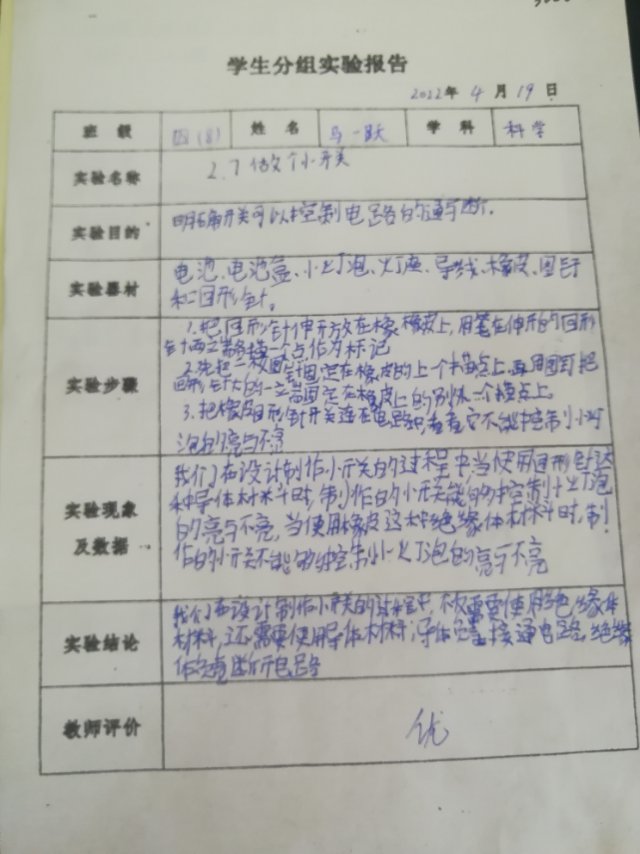 学生分组实验报告
2022年 4 月 19 日
班 级 四(8) 姓 名 马一跃 学 科 科学
实验名称 2.7 做个小开关
实验目的 明确开关可以控制电路的通与断。
实验器材 电池、电池盒、小灯泡、灯座、导线、橡皮、图钉
和回形针。
1.把回形针伸开放在橡皮上,用笔在伸开的回形
针两端各描一个点作为标记
实验步骤 2.先把一枚图钉固定在橡皮的上个描点上,再用图钉把
回形针的一端固定在橡皮上的另外一个描点上。
3.把橡皮回形针开关连在电路中,看看它能不能控制小灯
泡的亮与不亮
我们在设计制作小开关的过程中,当使用回形针这
实验现象 种导体材料时,制作的小开关能够控制小灯泡
及数据 的亮与不亮,当使用橡皮这种绝缘体材料时,制
作的小开关不能够控制小灯泡的亮与不亮
我们在设计制作小开关的过程中,不仅需要使用绝缘体
实验结论 材料,还需要使用导体材料;导体负责接通电路,绝缘
体负责断开电路
教师评价 优